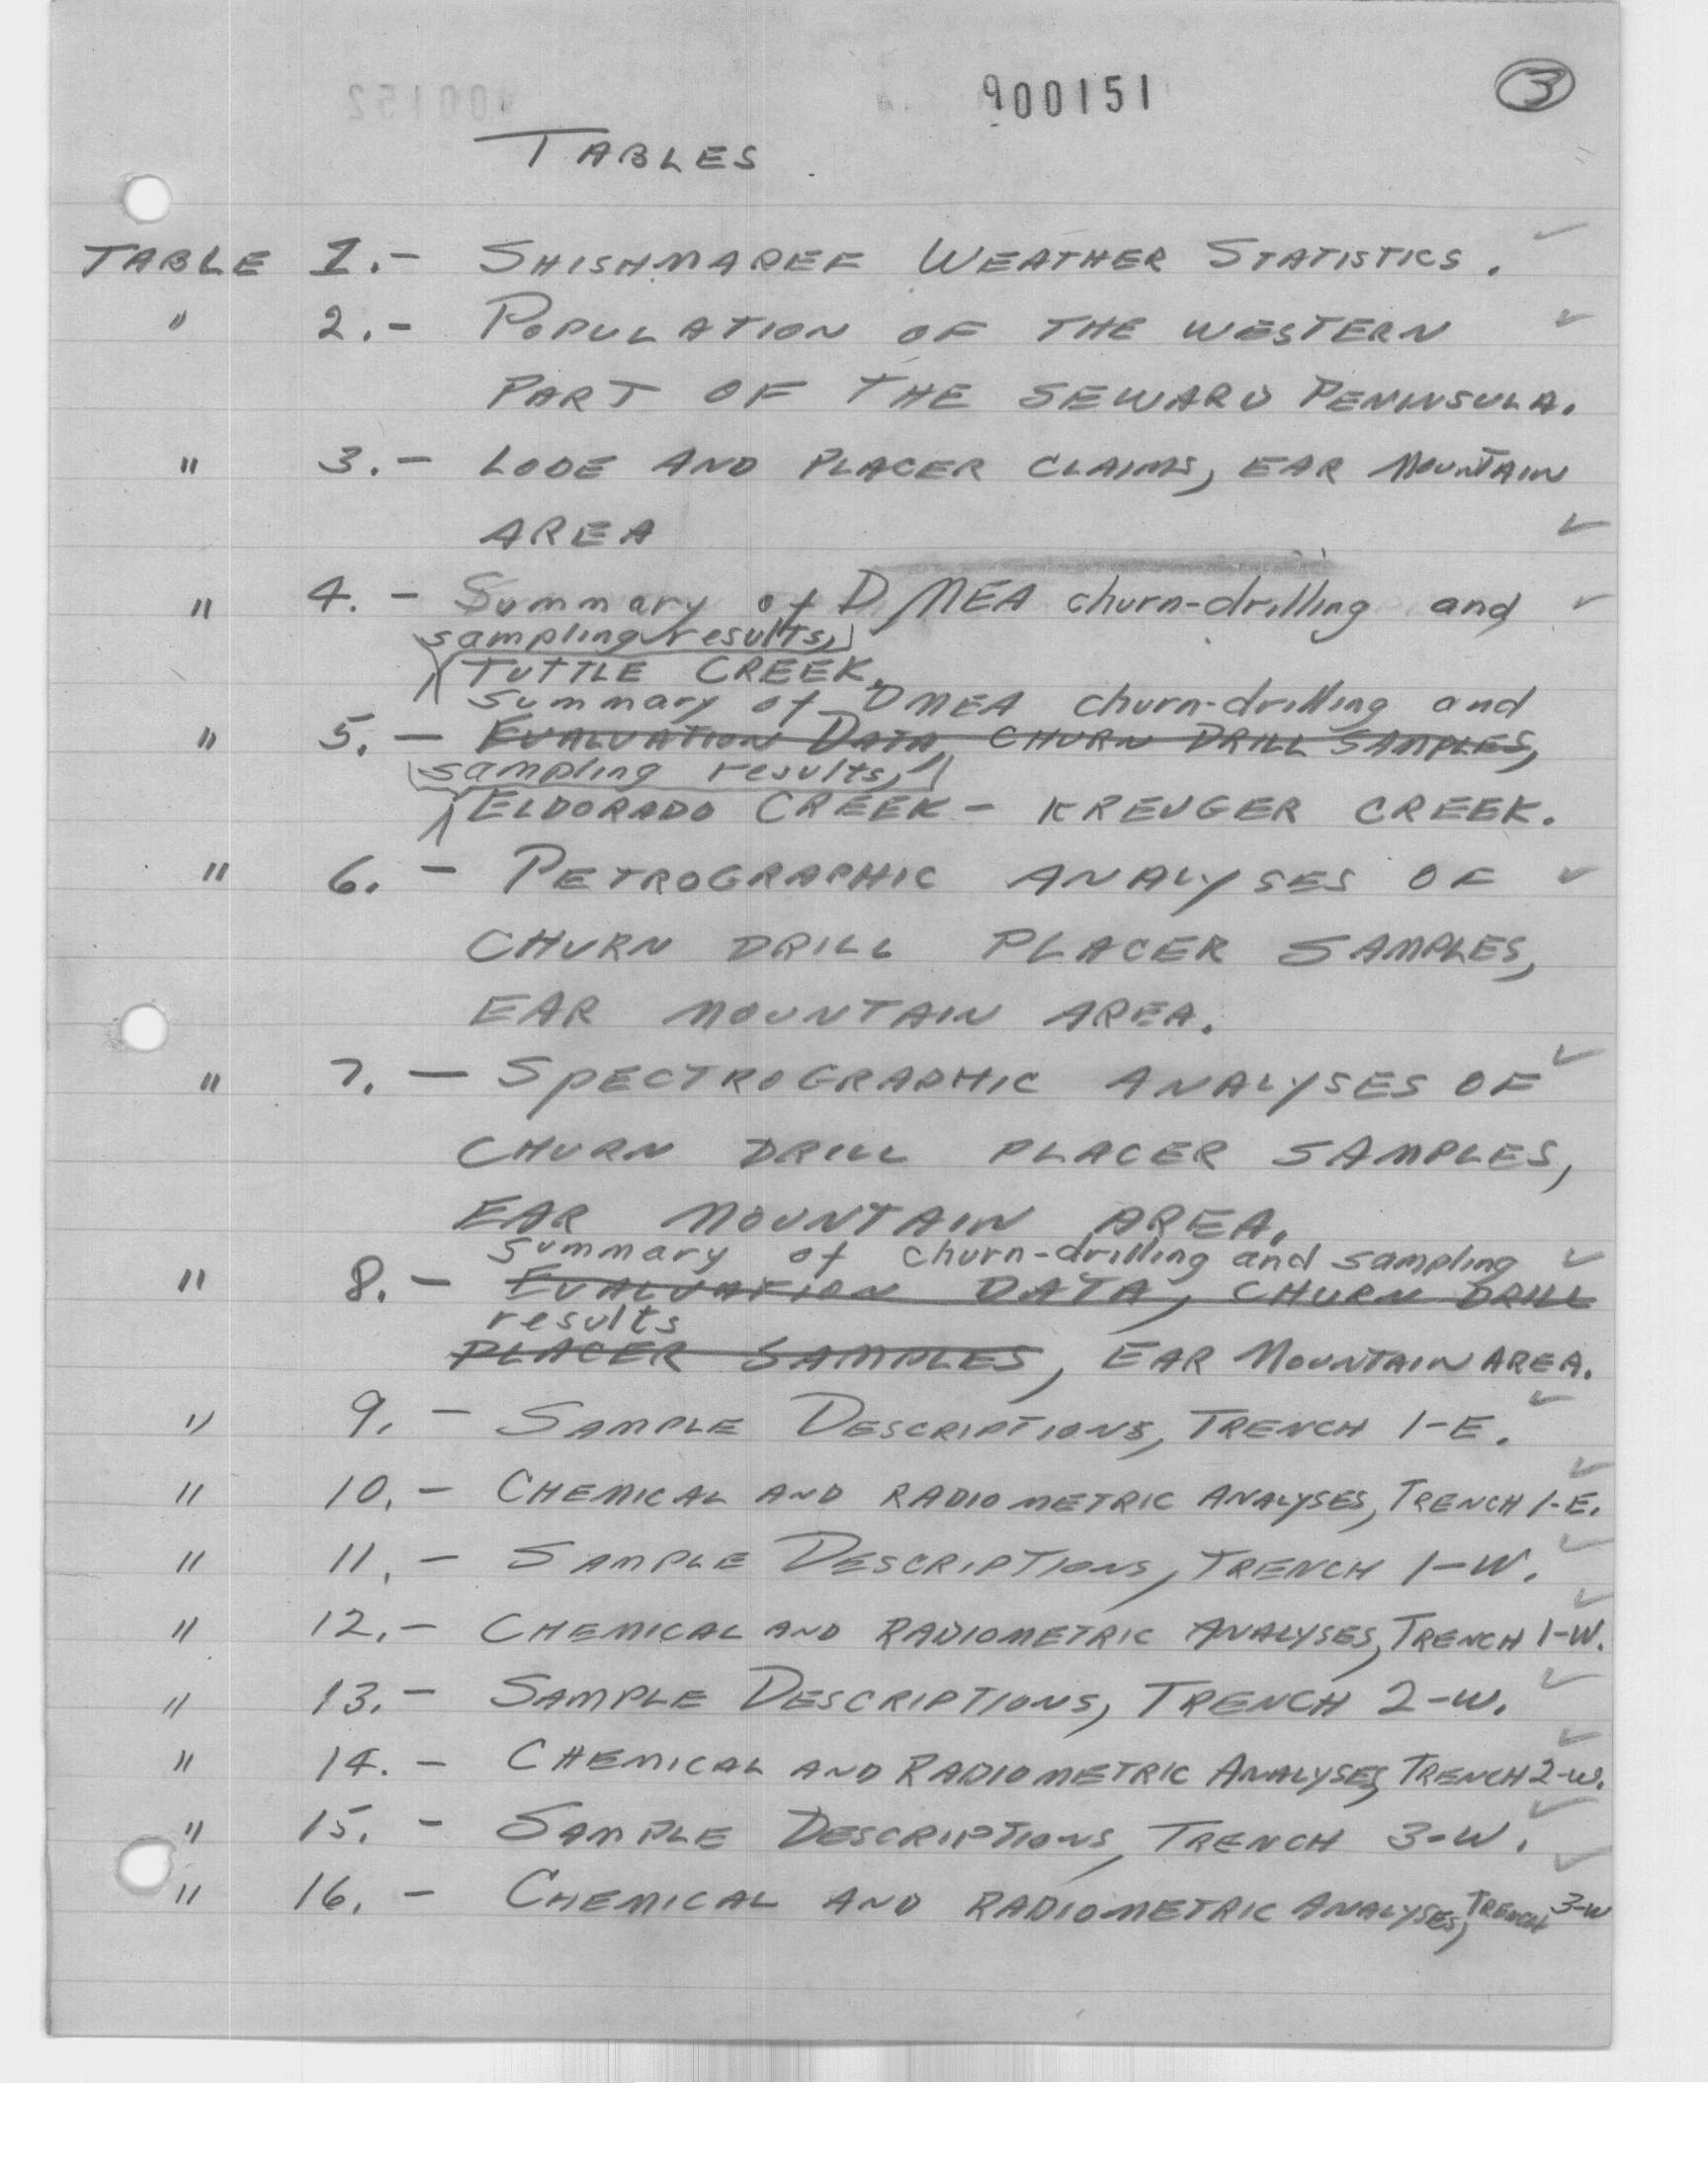 900151
3
TABLES
TABLE 1.- SHISHMAREF WEATHER STATISTICS.
" 2.- POPULATION OF THE WESTERN
PART OF THE SEWARD PENINSULA.
" 3.- LODE AND PLACER CLAIMS, EAR MOUNTAIN
AREA
" 4. - Summary of DMEA churn-drilling and
sampling results,
TUTTLE CREEK.
Summary of DMEA churn-drilling and
" 5. - EVALUATION DATA, CHURN DRILL SAMPLES,
sampling results,
ELDORADO CREEK - KREUGER CREEK.
" 6. - PETROGRAPHIC ANALYSES OF
CHURN DRILL PLACER SAMPLES,
EAR MOUNTAIN AREA.
" 7. - SPECTROGRAPHIC ANALYSES OF
CHURN DRILL PLACER SAMPLES,
EAR MOUNTAIN AREA.
Summary of churn-drilling and sampling
" 8. - EVALUATION DATA, CHURN DRILL
results
PLACER SAMPLES, EAR MOUNTAIN AREA.
" 9. - SAMPLE DESCRIPTIONS, TRENCH 1-E.
" 10. - CHEMICAL AND RADIOMETRIC ANALYSES, TRENCH 1-E.
" 11. - SAMPLE DESCRIPTIONS, TRENCH 1-W.
" 12. - CHEMICAL AND RADIOMETRIC ANALYSES, TRENCH 1-W.
" 13. - SAMPLE DESCRIPTIONS, TRENCH 2-W.
" 14. - CHEMICAL AND RADIOMETRIC ANALYSES, TRENCH 2-W.
" 15. - SAMPLE DESCRIPTIONS, TRENCH 3-W.
" 16. - CHEMICAL AND RADIOMETRIC ANALYSES, TRENCH 3-W